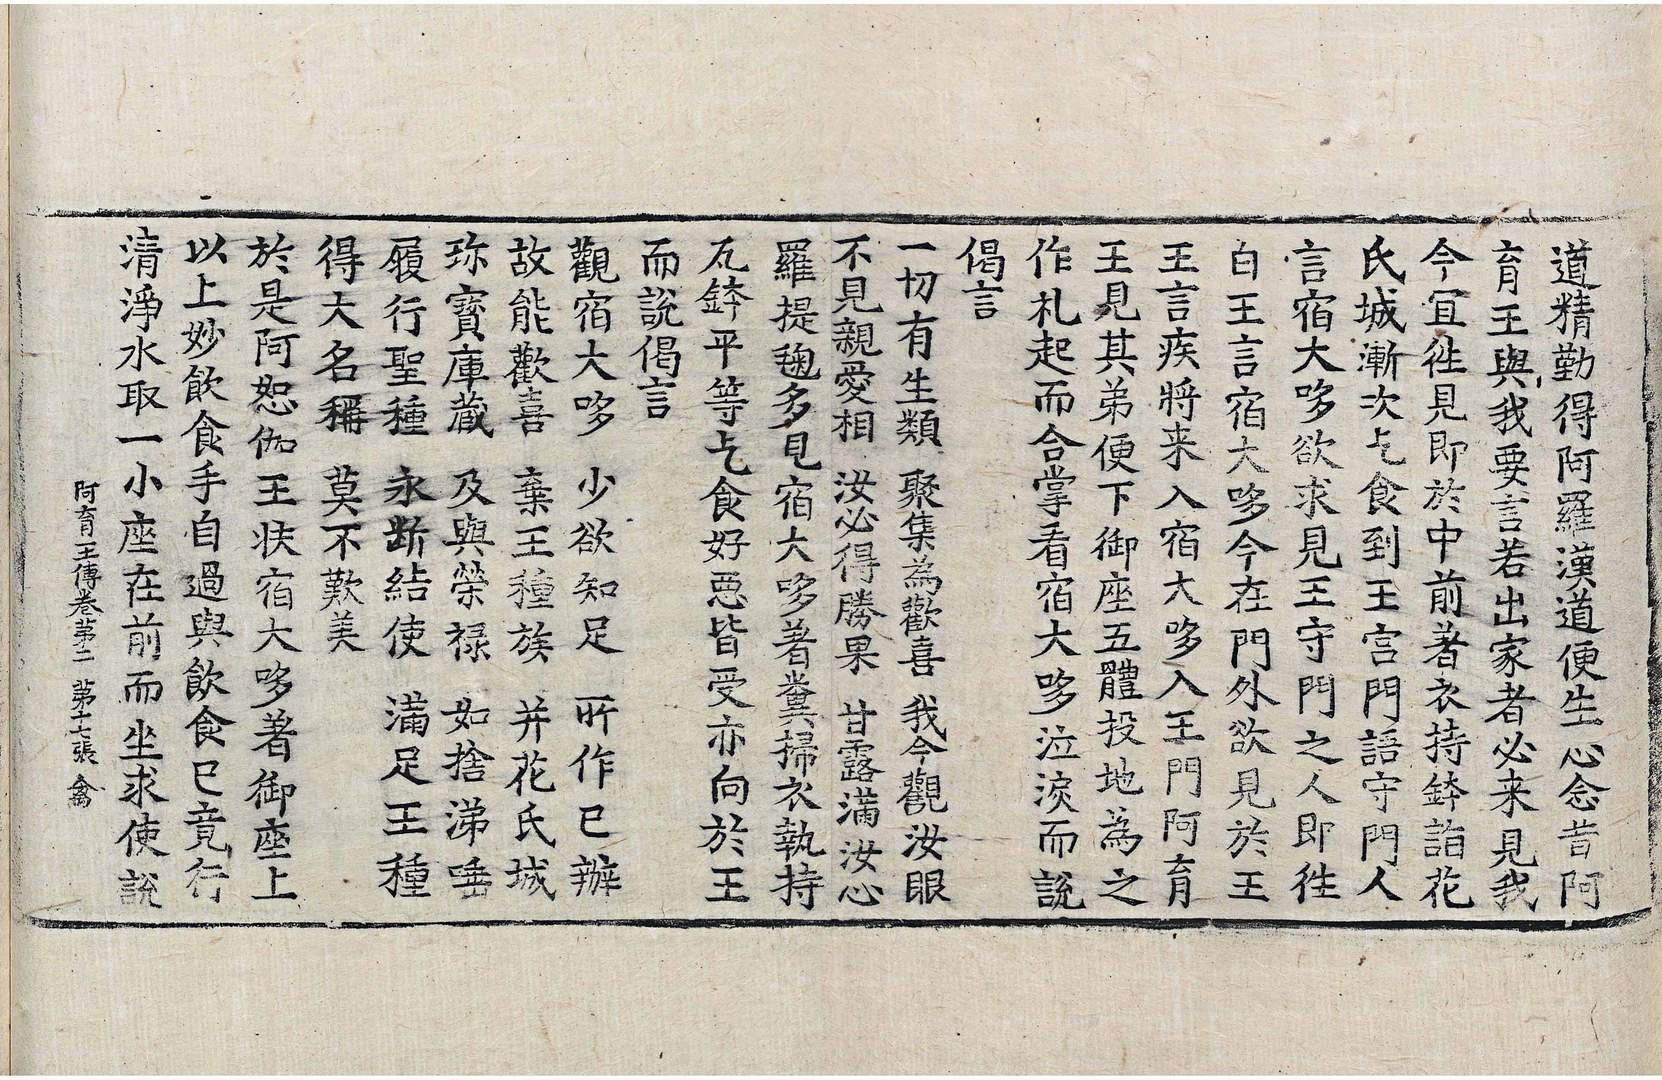 道精勤得阿羅漢道便生心念昔阿
育王與我要言若出家者必来見我
今宜徃見即於中前著衣持鉢詣花
氏城漸次乞食到王宫門語守門人
言宿大哆欲求見王守門之人即徃
白王言宿大哆今在門外欲見於王
王言疾將来入宿大哆入王門阿育
王見其弟便下御座五體投地為之
作札起而合掌看宿大哆泣淚而說
偈言
一切有生類 聚集為歡喜 我今觀汝眼
不見親愛相 汝必得勝果 甘露滿汝心
羅提毱多見宿大哆著糞掃衣執持
瓦鉢平等乞食好惡皆受亦向於王
而說偈言
觀宿大哆 少欲知足 所作已辦
故能歡喜 棄王種族 并花氏城
珎寶庫藏 及與榮禄 如捨涕唾
履行聖種 永断結使 滿足王種
得大名稱 莫不歎美
於是阿恕伽王扶宿大哆著御座上
以上妙飲食手自過與飲食已竟行
清淨水取一小座在前而坐求使說
阿育王傳卷第二 第十七張 禽